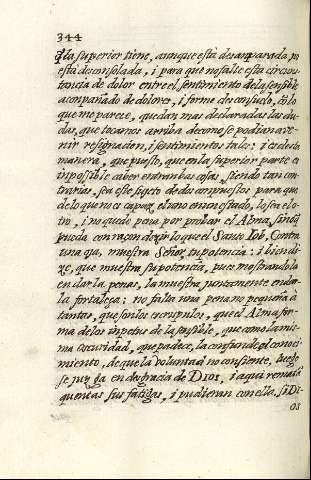 344
q̃ la superior tiene, aunque està desamparada, no
està desconsolada, i para que no falte esta circuns-
tancia de dolor entre el sentimiento de la sensible
acompañado de dolores, i forme desconsuelo, cõ lo
que me parece, quedan mas declaradas las du-
das, que tocamos arriba de como se podian ave-
nir resignacion, i sentimientos tales: i es desta
manera, que puesto, que en la superior parte es
inpossible caber entranbas cosas, siendo tan con-
trarias, sea este sujeto de dos conpuestos para que
de lo que no es capaz el uno en un estado, lo sea el o-
tro, i no quede pena por probar el Alma, sin q̃
pueda con razon dezir lo que el Santo Iob, Contra
una oja, muestra Señor tu potencia: i bien di-
ze, que muestra su potencia, pues mostrandola
en dar la penas, la muestra juntamente en dar-
la fortaleza: no falta una pena no pequeña à
tantas, que son los escrupulos, que el Alma for-
ma de los inpetus de la sensible, que como la mis-
ma escuridad, que padece, la confunde el conoci-
miento, de que la voluntad no consiente, luego
se juzga en desgracia de DIOS, i aqui remata
quentas sus fatigas, i pudieran con ella, si Di-
os